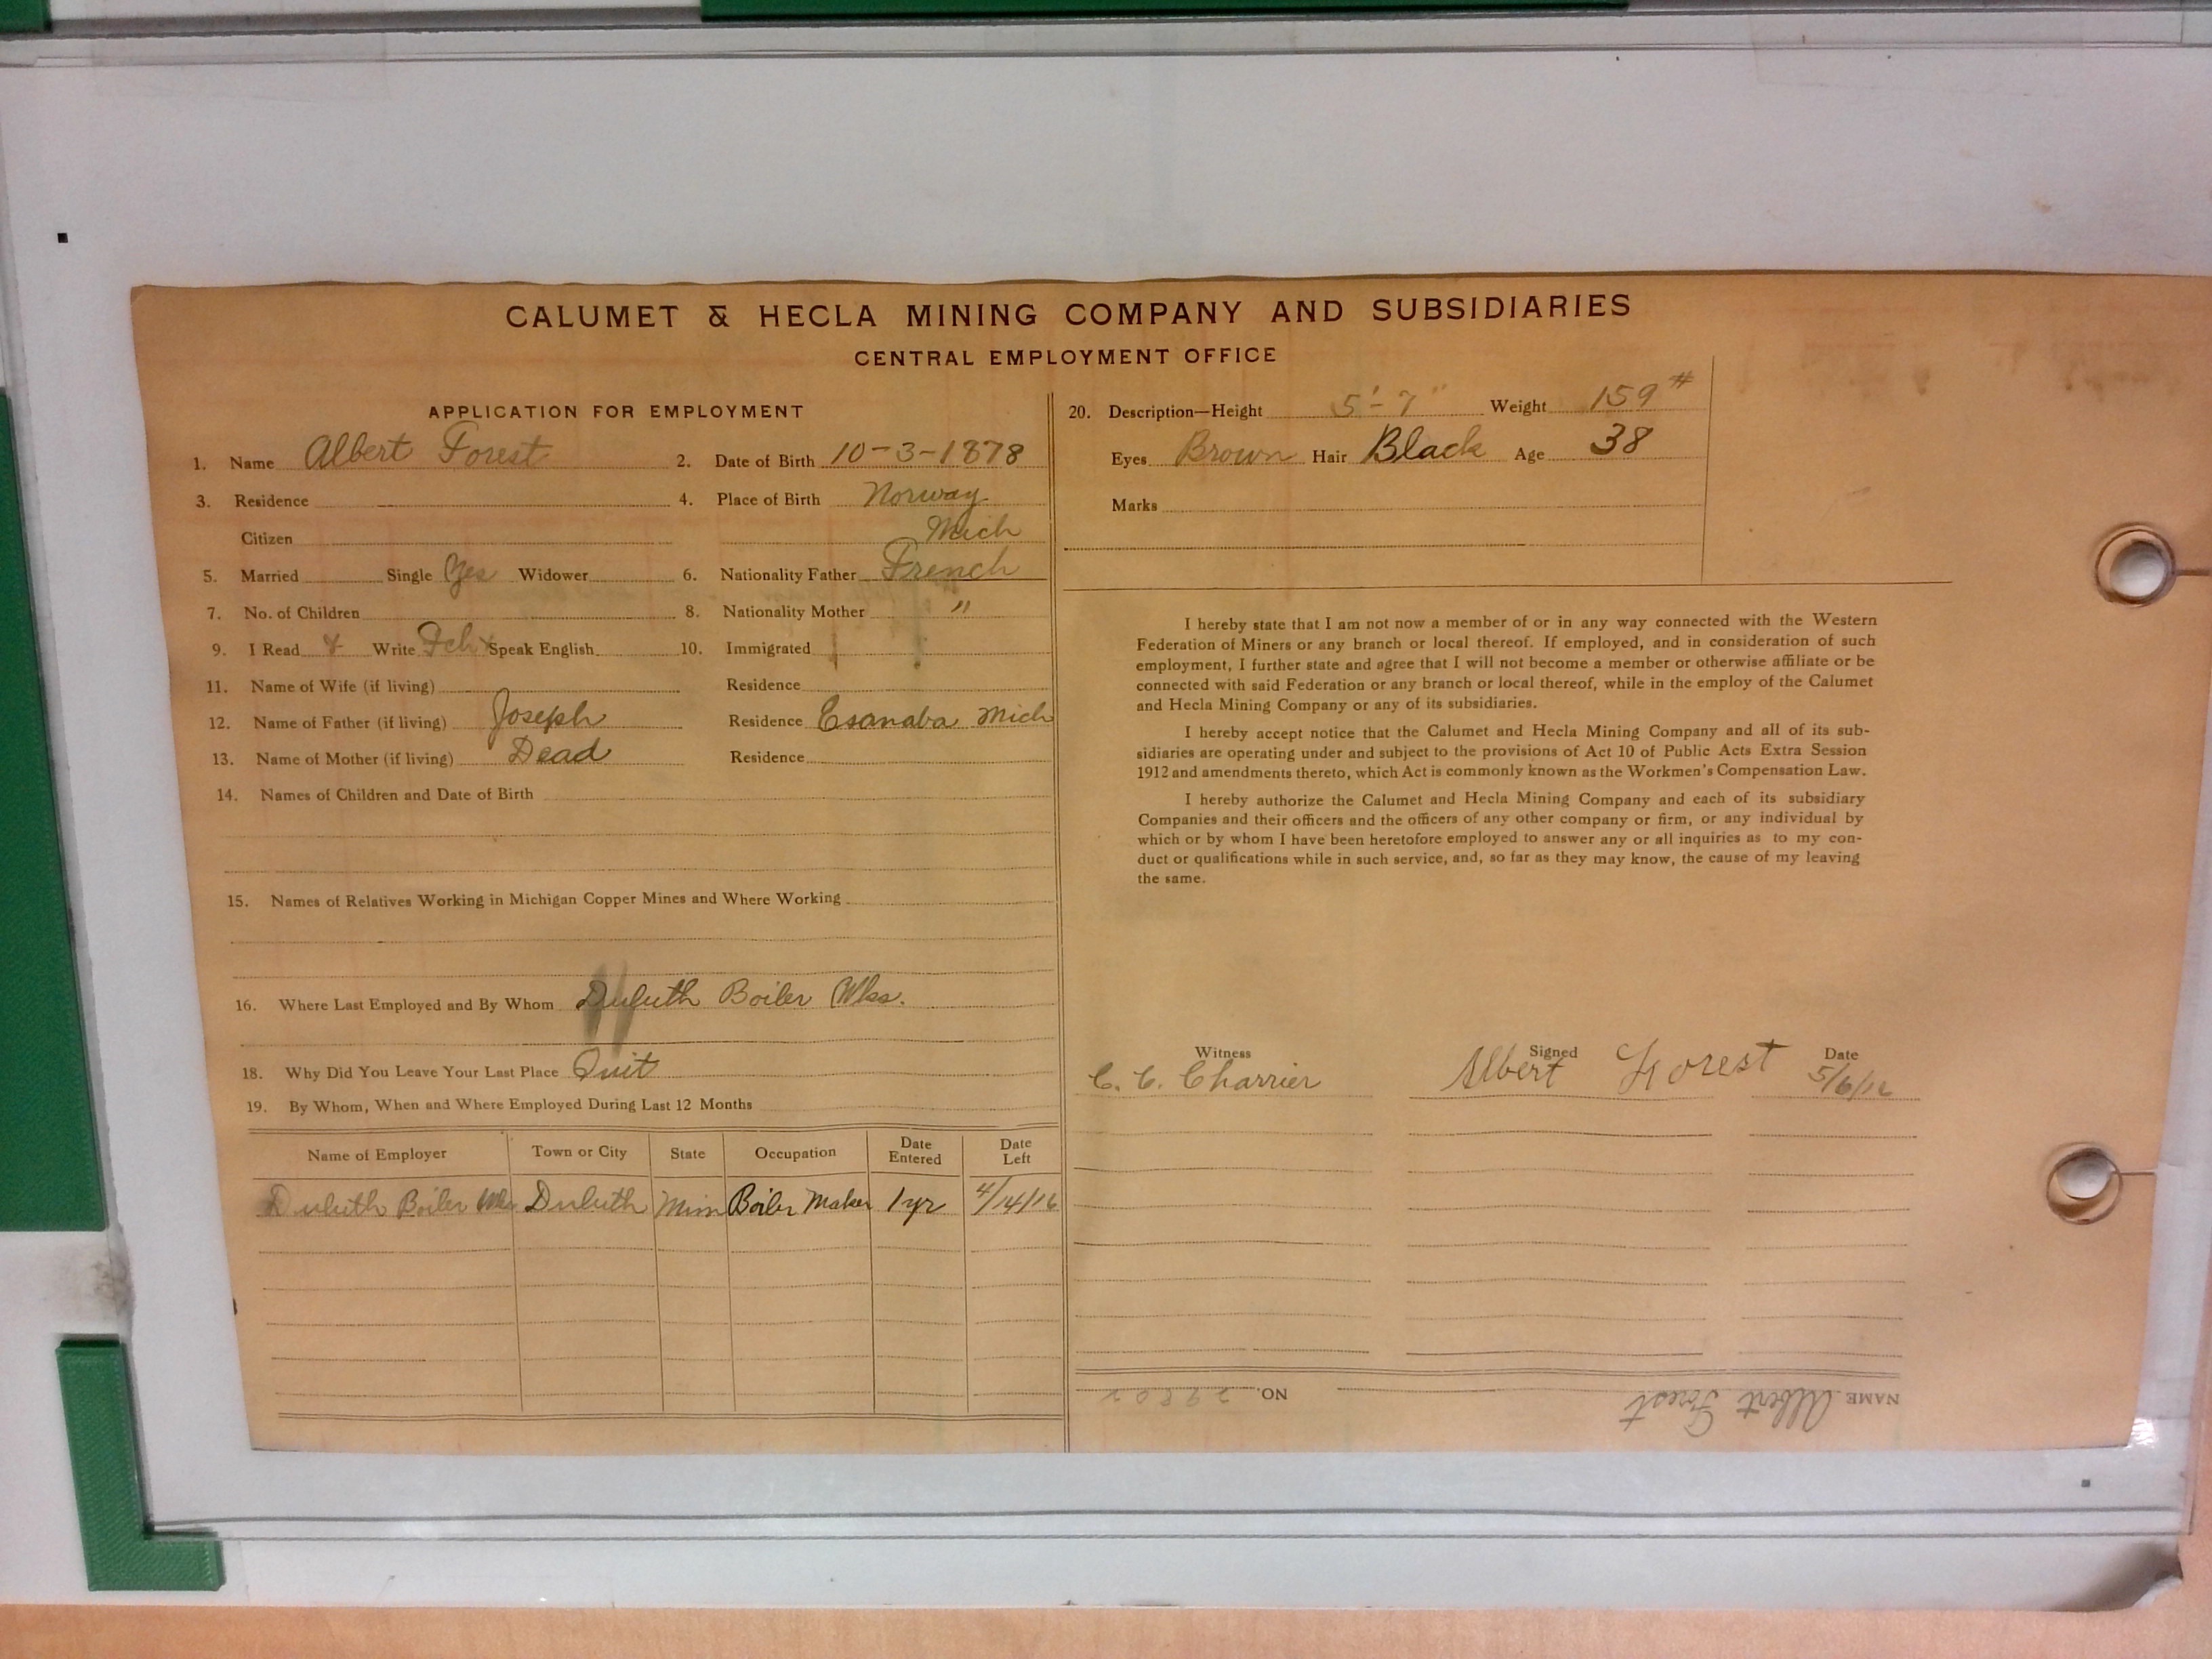 CALUMET & HECLA MINING COMPANY AND SUBSIDIARIES
CENTRAL EMPLOYMENT OFFICE
APPLICATION FOR EMPLOYMENT
1. Name Albert Forest 2. Date of Birth 10-3-1878
3. Residence 4. Place of Birth Norway
Citizen Mich
5. Married Single Yes Widower 6. Nationality Father French
7. No. of Children 8. Nationality Mother "
9. I Read & Write Speak English 10. Immigrated
11. Name of Wife (if living) Residence
12. Name of Father (if living) Joseph Residence Esanaba Mich
13. Name of Mother (if living) Dead Residence
14. Names of Children and Date of Birth
15. Names of Relatives Working in Michigan Copper Mines and Where Working
16. Where Last Employed and By Whom Duluth Boiler Wks.
18. Why Did You Leave Your Last Place Quit
19. By Whom, When and Where Employed During Last 12 Months
Name of Employer Town or City State Occupation Date Entered Date Left
Duluth Boiler Wks Duluth Minn Boiler Maker 1 yr 4/14/16
20. Description—Height 5'-7" Weight 159#
Eyes Brown Hair Black Age 38
Marks
I hereby state that I am not now a member of or in any way connected with the Western
Federation of Miners or any branch or local thereof. If employed, and in consideration of such
employment, I further state and agree that I will not become a member or otherwise affiliate or be
connected with said Federation or any branch or local thereof, while in the employ of the Calumet
and Hecla Mining Company or any of its subsidiaries.
I hereby accept notice that the Calumet and Hecla Mining Company and all of its sub-
sidiaries are operating under and subject to the provisions of Act 10 of Public Acts Extra Session
1912 and amendments thereto, which Act is commonly known as the Workmen's Compensation Law.
I hereby authorize the Calumet and Hecla Mining Company and each of its subsidiary
Companies and their officers and the officers of any other company or firm, or any individual by
which or by whom I have been heretofore employed to answer any or all inquiries as to my con-
duct or qualifications while in such service, and, so far as they may know, the cause of my leaving
the same.
Witness Signed Date
C. C. Charrier Albert Forest 5/6/16
NAME Albert Forest NO.